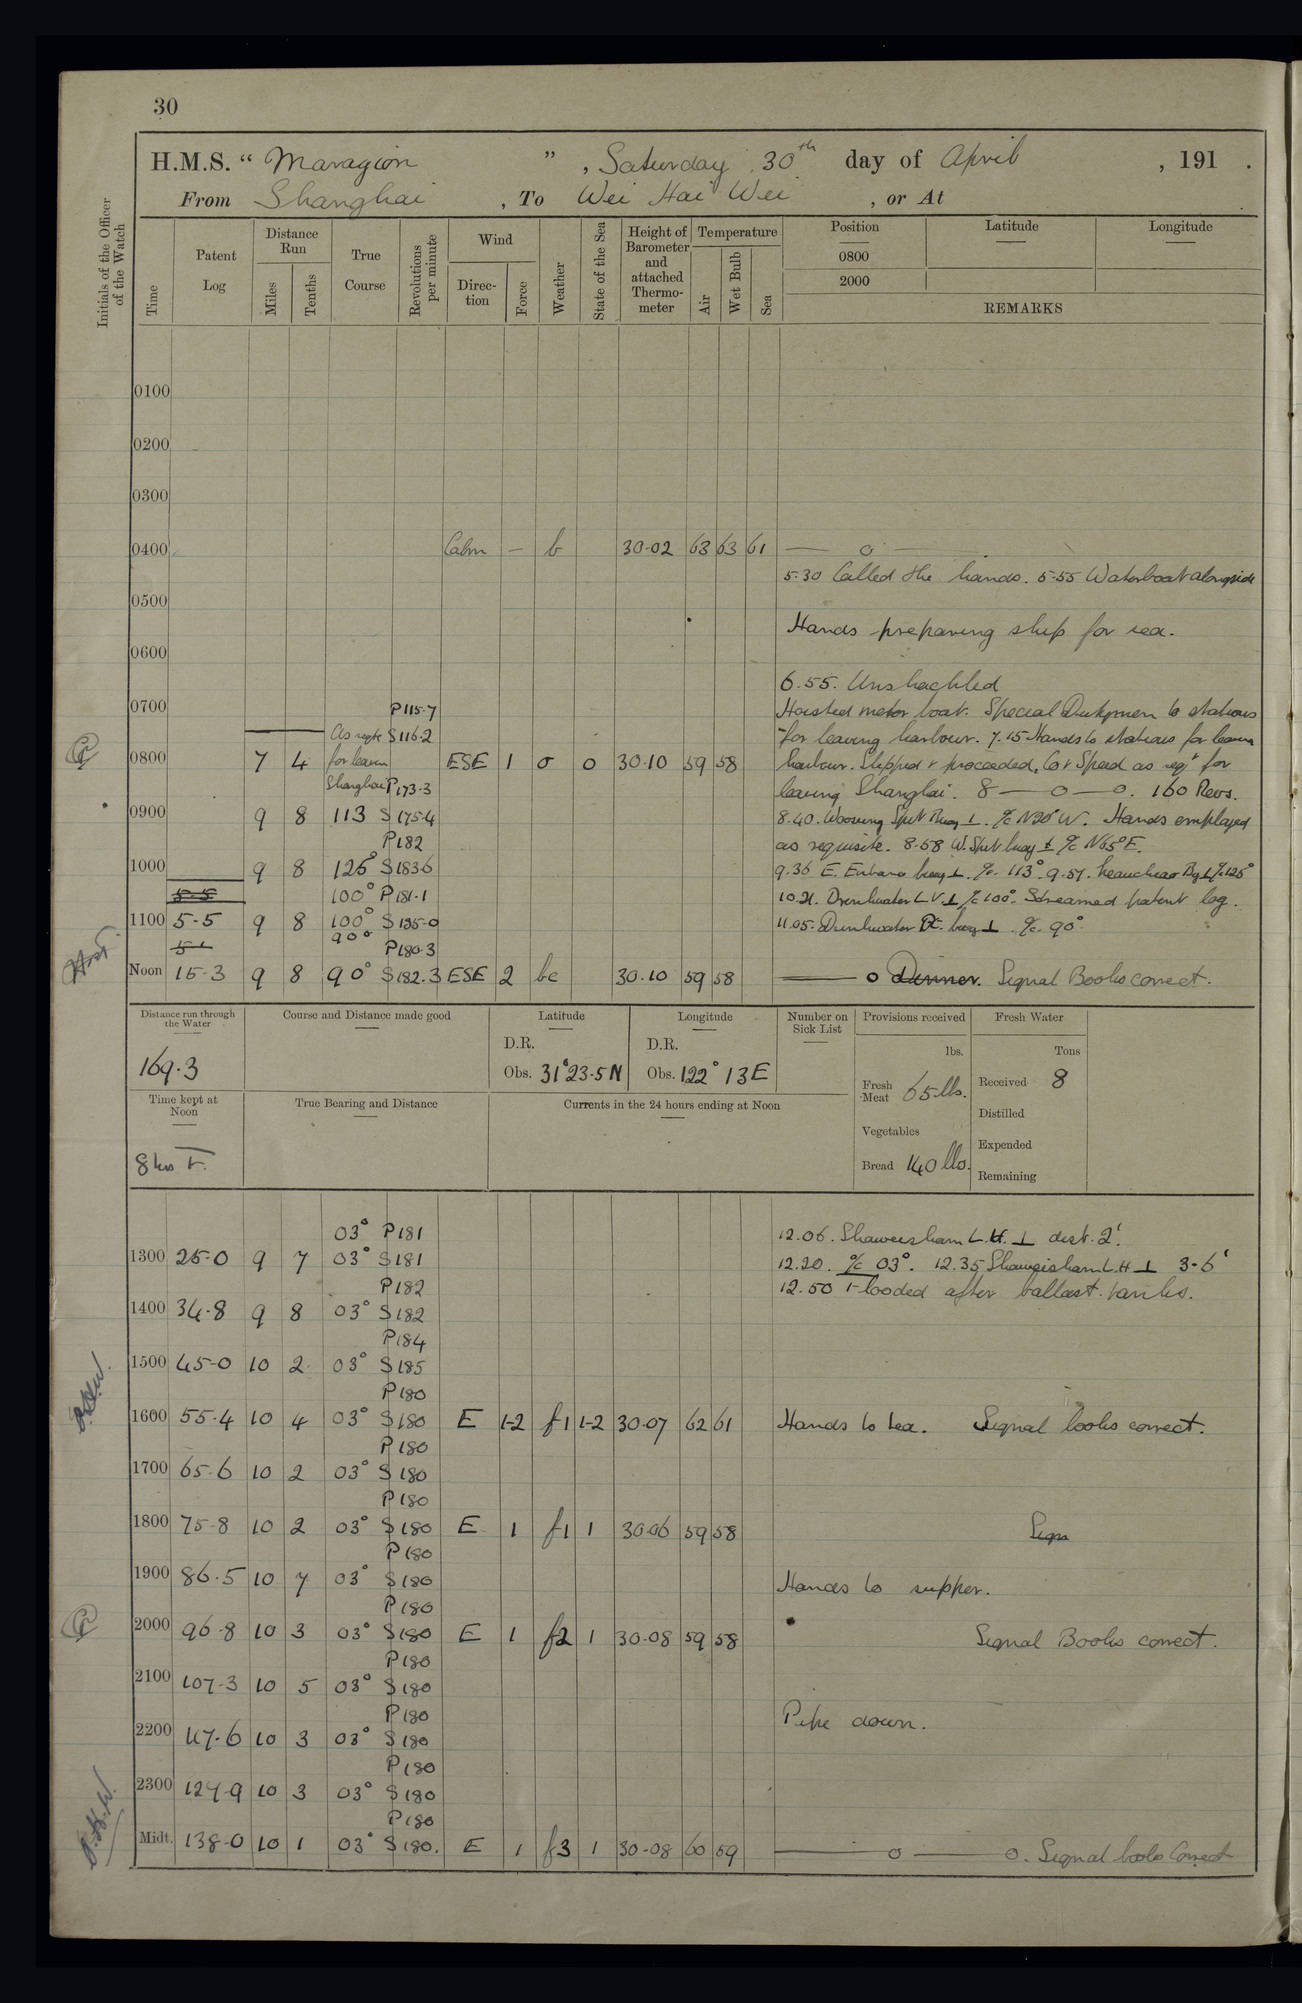 30
H.M.S. “ Maragion ” , Saturday 30th day of April , 191 .
From Shanghai , To Wei Hai Wei , or At
Initials of the Officer of the Watch
Time
Patent Log
Distance Run
Miles
Tenths
True Course
Revolutions per minute
Wind
Direc-tion
Force
Weather
State of the Sea
Height of Barometer and attached Thermo-meter
Temperature
Air
Wet Bulb
Sea
Position
Latitude
Longitude
0800
2000
REMARKS
0100
0200
0300
0400 Calm — b 30·02 63 63 61 — o —
5·30 Called the hands. 5·55 Waterboat alongside
0500
Hands preparing ship for sea.
0600
6·55. Unshackled
0700 P115·7
Hoisted motor boat. Special Dutymen to stations
As reqte S116·2
for leaving harbour. 7.15 Hands to stations for leaving
0800 7 4 for leavin ESE 1 o 0 30·10 59 58 harbour. Slipped & proceeded. Co & Speed as reqt for
Shanghai P173·3
leaving Shanghai. 8 — o — o. 160 Revs.
0900 9 8 113 S175·4 8·40. Woosung Spit Buoy ⊥. %c N20°W. Hands employed
P182
as requisite. 8·58 W. Spit buoy ⊥ %c N65°E.
1000 9 8 125° S183·6 9.36 E. Entrance buoy ⊥. %c. 113°. 9·57.
5·5 100° P181·1 10·21. Drinkwater L.V. ⊥ %c 100°. Streamed patent log.
1100 5·5 9 8 100° S185·0 11.05. Drinkwater Pt. buoy ⊥. %c. 90°
5·1 90° P180·3
Noon 15·3 9 8 90° S182.3 ESE 2 bc 30·10 59 58 — o Dinner. Signal Books correct.
Distance run through the Water
169·3
Course and Distance made good
Latitude
D.R.
Obs. 31°23·5N
Longitude
D.R.
Obs. 122° 13E
Number on Sick List
Provisions received
lbs.
Fresh Meat 65 lbs.
Vegetables
Bread 140 lbs.
Fresh Water
Tons
Received 8
Distilled
Expended
Remaining
Time kept at Noon
8 hrs
True Bearing and Distance
Currents in the 24 hours ending at Noon
03° P181 12.06. Shaweishan L.H. ⊥ dist. 2'.
1300 25·0 9 7 03° S181 12.20. %c 03°. 12.35 Shaweishan L.H ⊥ 3·6'
P182 12.50 Flooded after ballast tanks.
1400 34·8 9 8 03° S182
P184
1500 45·0 10 2 03° S185
P180
1600 55·4 10 4 03° S180 E 1-2 f1 1-2 30·07 62 61 Hands to tea. Signal books correct.
P180
1700 65·6 10 2 03° S180
P180
1800 75·8 10 2 03° S180 E 1 f1 1 30·06 59 58 Sign
P180
1900 86·5 10 7 03° S180 Hands to supper.
P180
2000 96·8 10 3 03° S180 E 1 f2 1 30·08 59 58 Signal Books correct.
P180
2100 107·3 10 5 03° S180
P180 Pipe down.
2200 117·6 10 3 03° S180
P180
2300 127·9 10 3 03° S180
P180
Midt. 138·0 10 1 03° S180. E 1 f3 1 30·08 60 59 — o — o. Signal books Correct